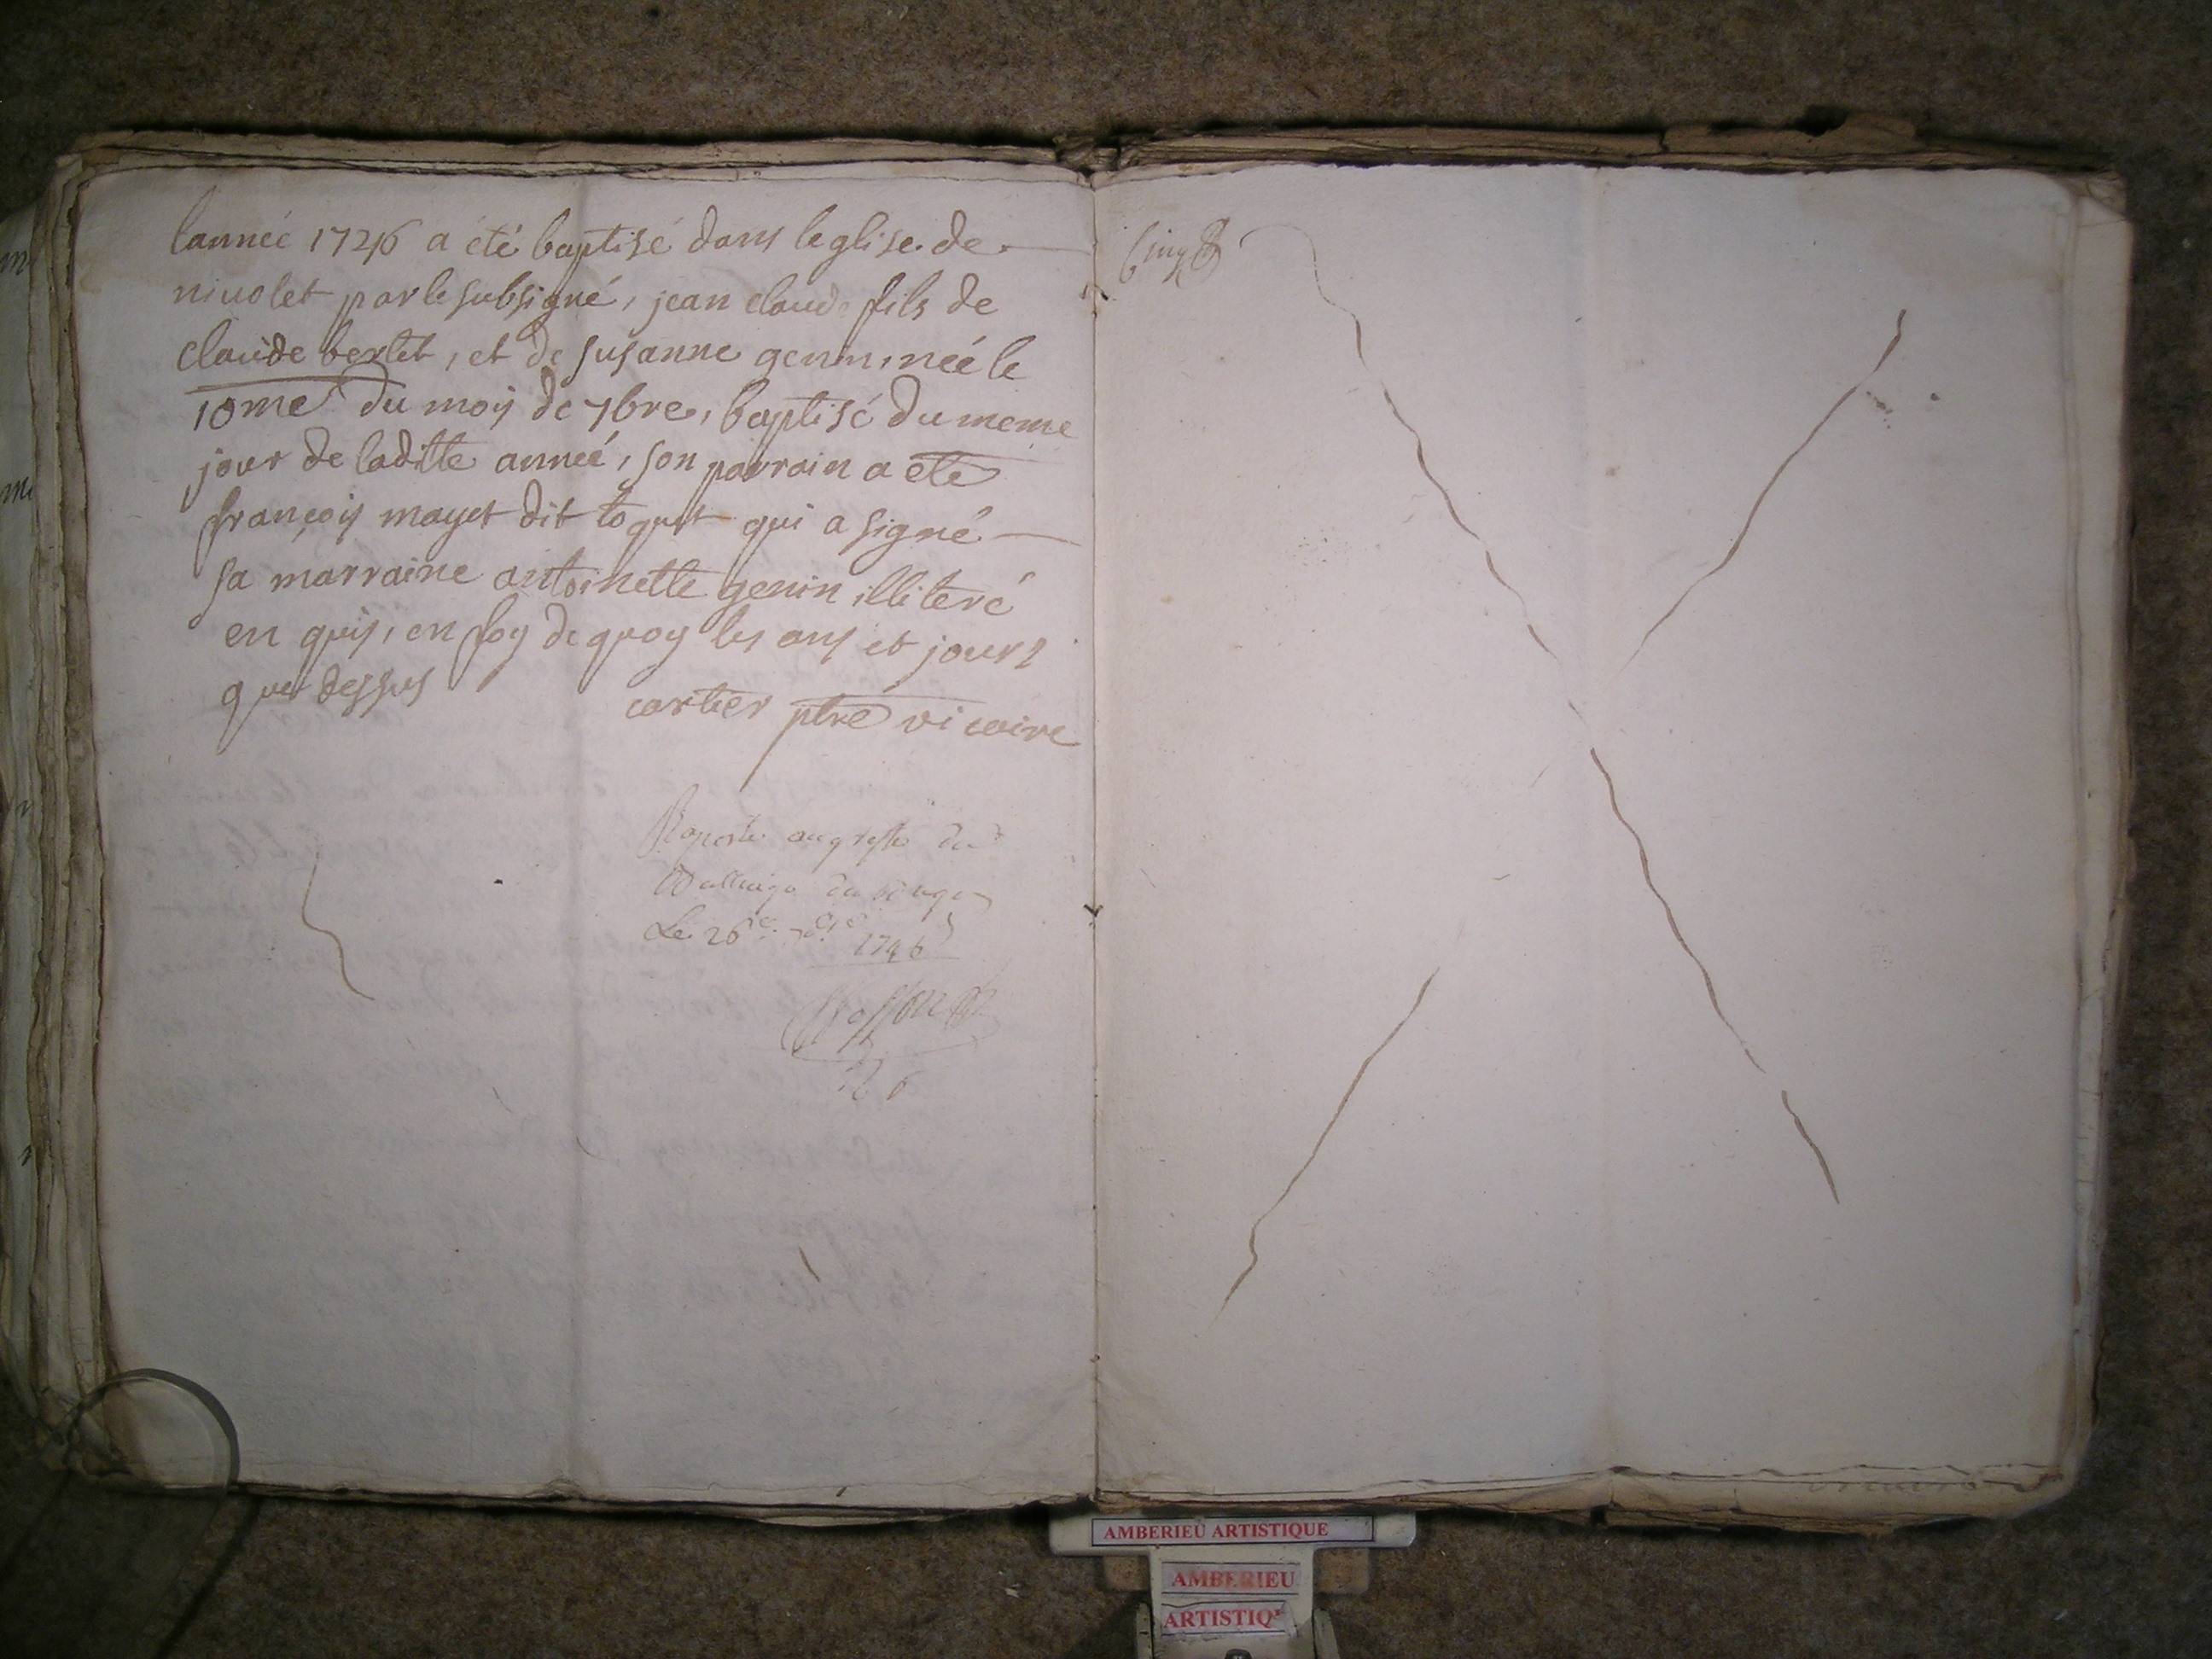 lannéé 1746 a été baptisé dans leglise de
nivolet par le subsigné, jean claude fils de
claude berlet, et de susanne genin, neé le
10me du moy de 7bre, baptisé du meme
jour de laditte anneé, son parrain a été
françois mayet dit toquet qui a signé
sa marraine antoinette genin illiteré
en quis, en foy de quoy les ans et jours
que dessus
cartier ptre vicaire
Raporté au greffe du
Balliage du bugey
Le 26e 7bre 1746
Cinq
AMBERIEU ARTISTIQUE
AMBERIEU
ARTISTIQ